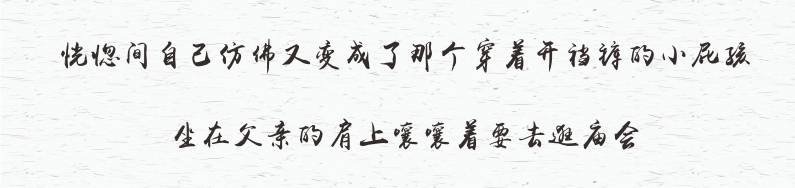 恍惚间自己仿佛又变成了那个穿着开裆裤的小屁孩
坐在父亲的肩上嚷嚷着要去逛庙会